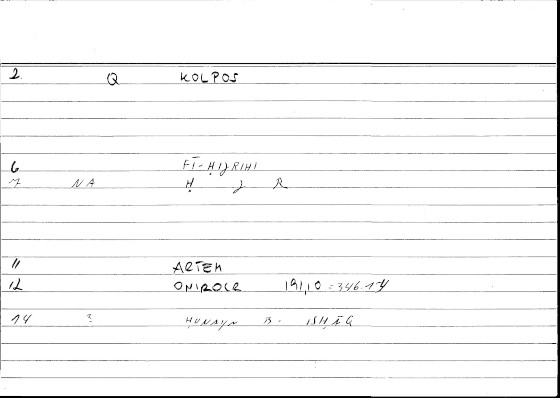 2. Q KOLPOS
6 FĪ-ḤIJRIHI
7 NA Ḥ J R
11 ARTEM
12 ONIROCR 191,10 = 346.14
14 ? ḤUNAYN B. ISḤĀQ